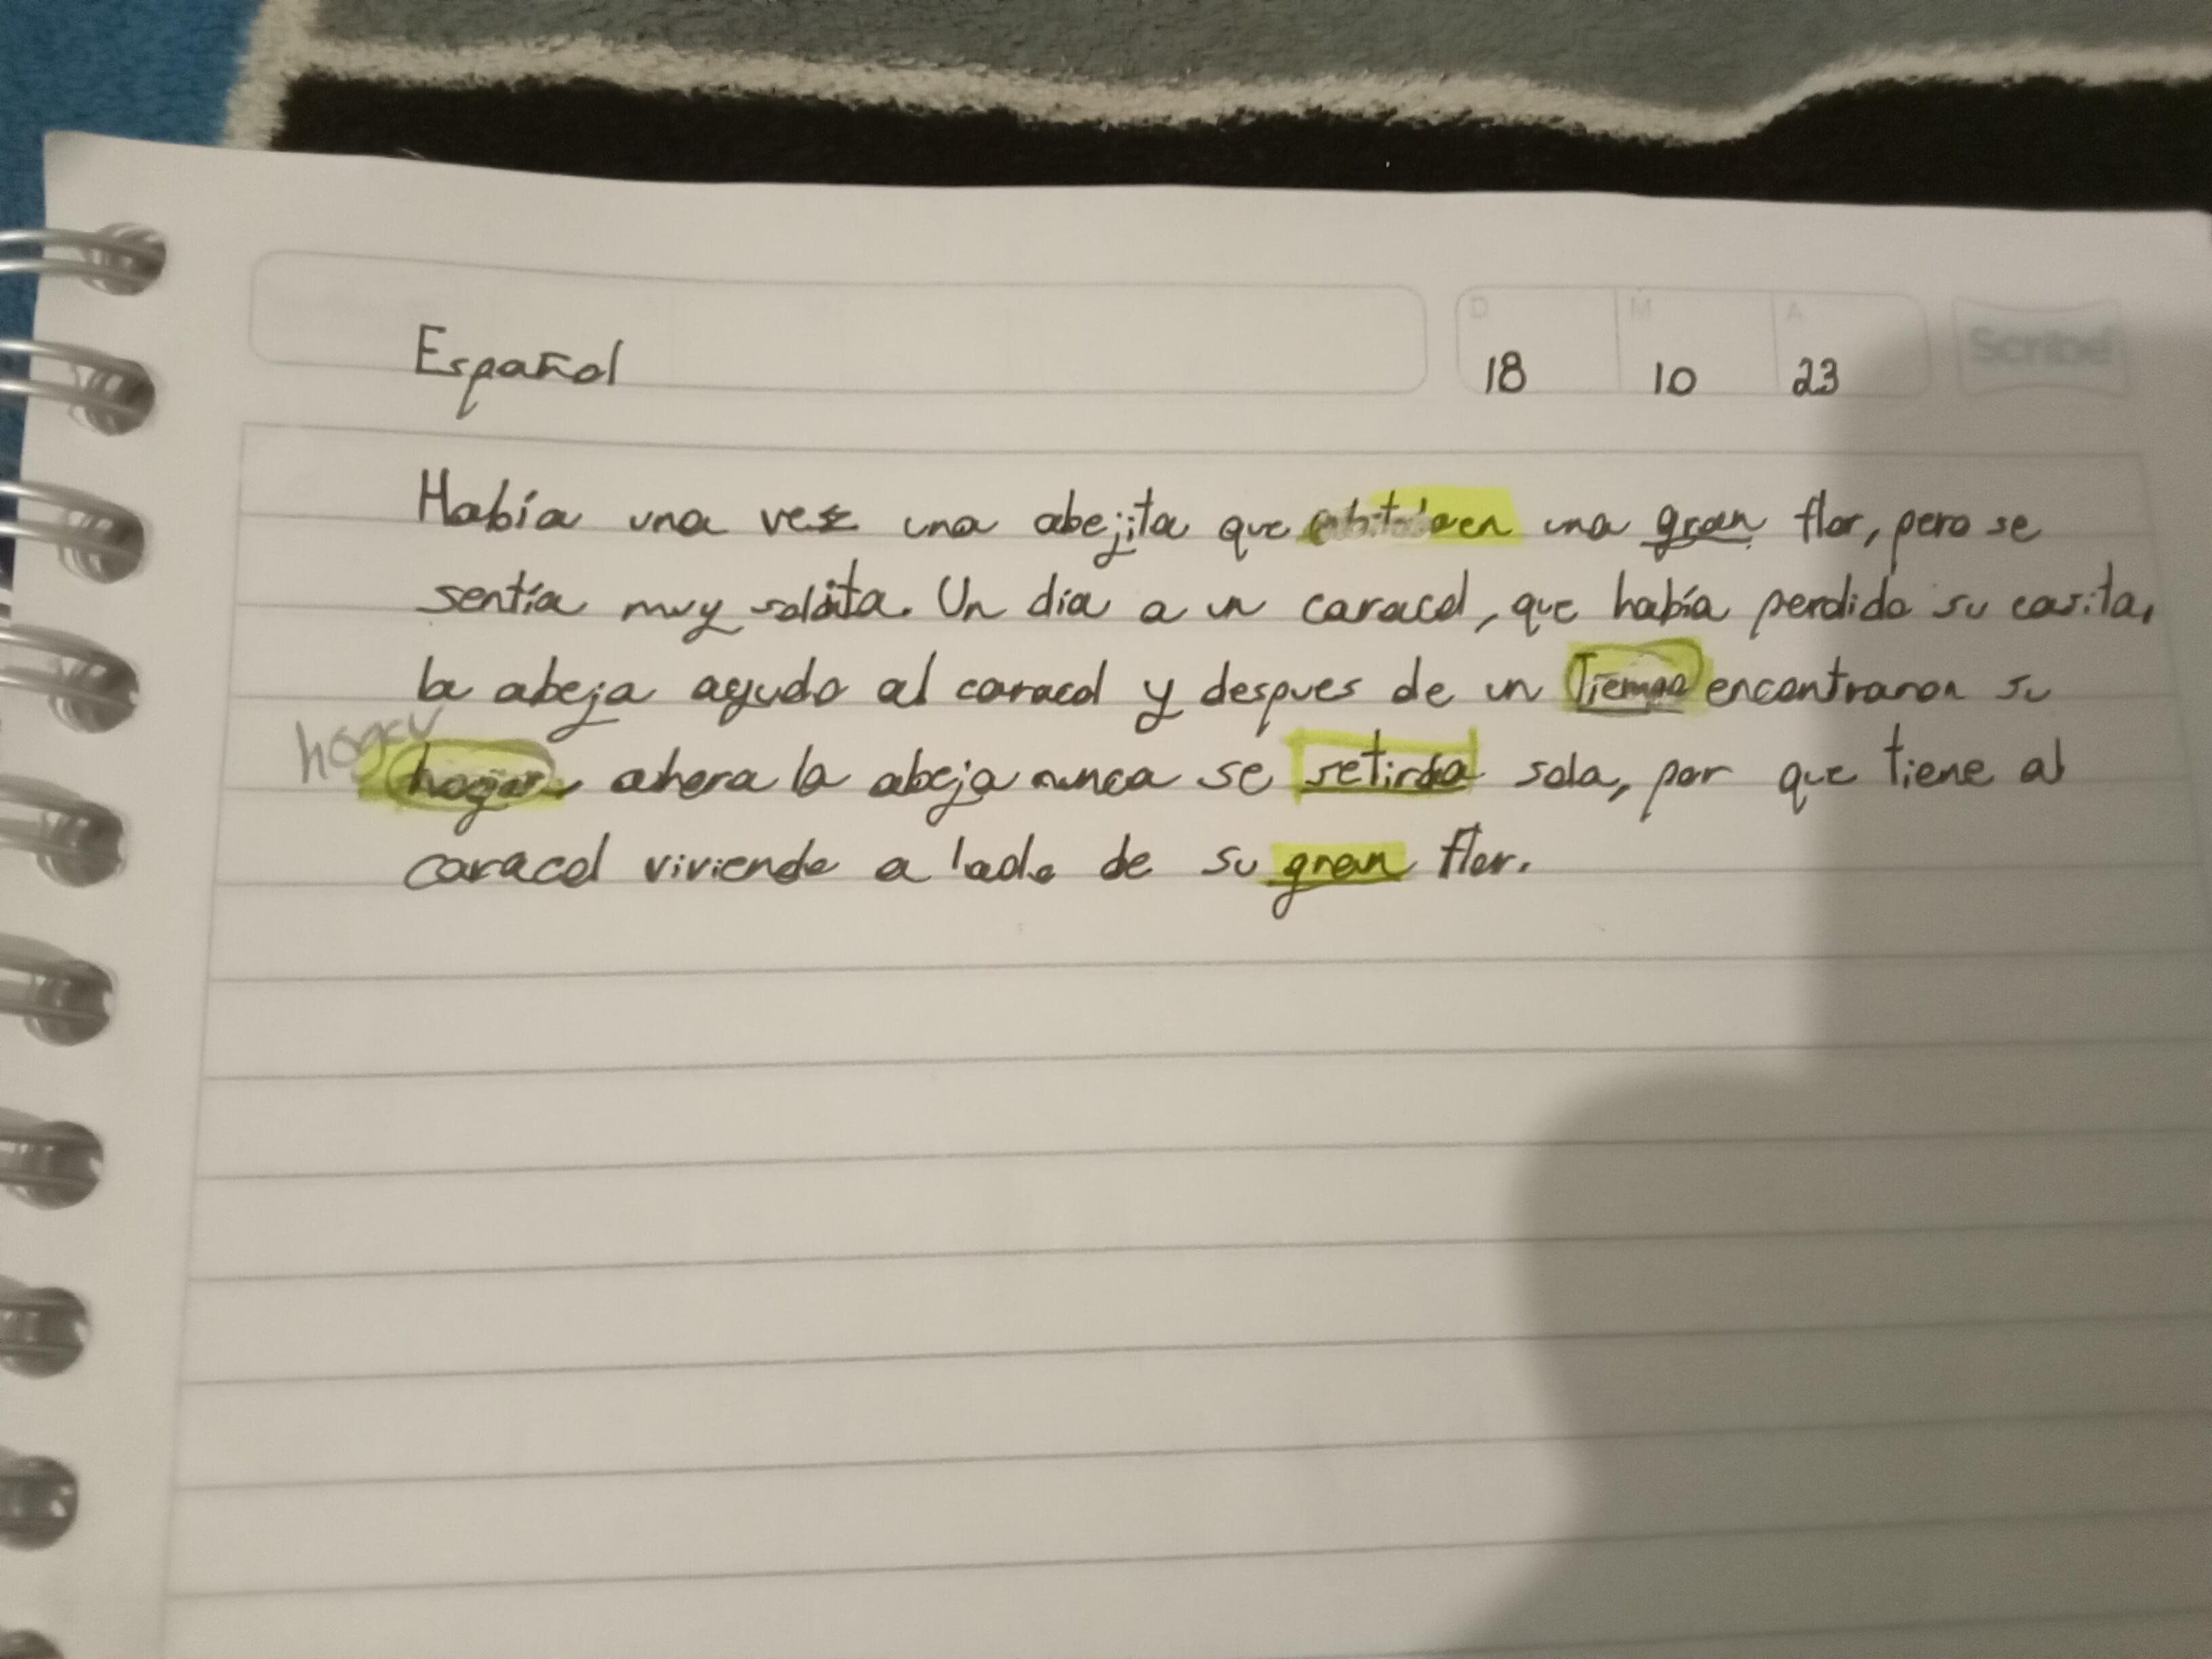 Español
D M A
18 10 23
Scribe
Había una vez una abejita que en una gran flor, pero se
sentía muy solita. Un día a un caracol, que había perdido su casita,
la abeja ayudo al caracol y despues de un Tiempo encontraron su
hogar
hogar, ahora la abeja nunca se sola, por que tiene al
caracol viviendo a lado de su gran flor.